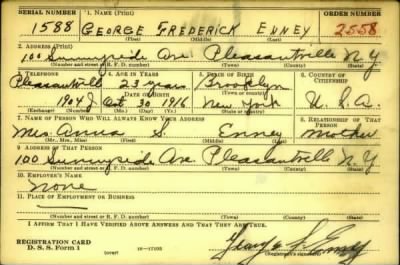 SERIAL NUMBER 1. NAME (Print) ORDER NUMBER
1588 GEORGE FREDERICK ENNEY 2558
(First) (Middle) (Last)
2. ADDRESS (Print)
100 Sunnyside Ave Pleasantville N.Y.
(Number and street or R. F. D. number) (Town) (County) (State)
3. TELEPHONE 4. AGE IN YEARS 5. PLACE OF BIRTH 6. COUNTRY OF CITIZENSHIP
Pleasantville 23 years Brooklyn
DATE OF BIRTH (Town or county)
1904J Oct 30 1916 New York U.S.A.
(Exchange) (Number) (Mo.) (Day) (Yr.) (State or country)
7. NAME OF PERSON WHO WILL ALWAYS KNOW YOUR ADDRESS 8. RELATIONSHIP OF THAT PERSON
Mrs. Anna S. Enney Mother
(Mr., Mrs., Miss) (First) (Middle) (Last)
9. ADDRESS OF THAT PERSON
100 Sunnyside Ave. Pleasantville N.Y.
(Number and street or R. F. D. number) (Town) (County) (State)
10. EMPLOYER'S NAME
None
11. PLACE OF EMPLOYMENT OR BUSINESS
(Number and street or R. F. D. number) (Town) (County) (State)
I AFFIRM THAT I HAVE VERIFIED ABOVE ANSWERS AND THAT THEY ARE TRUE.
REGISTRATION CARD
D. S. S. Form 1 (over)